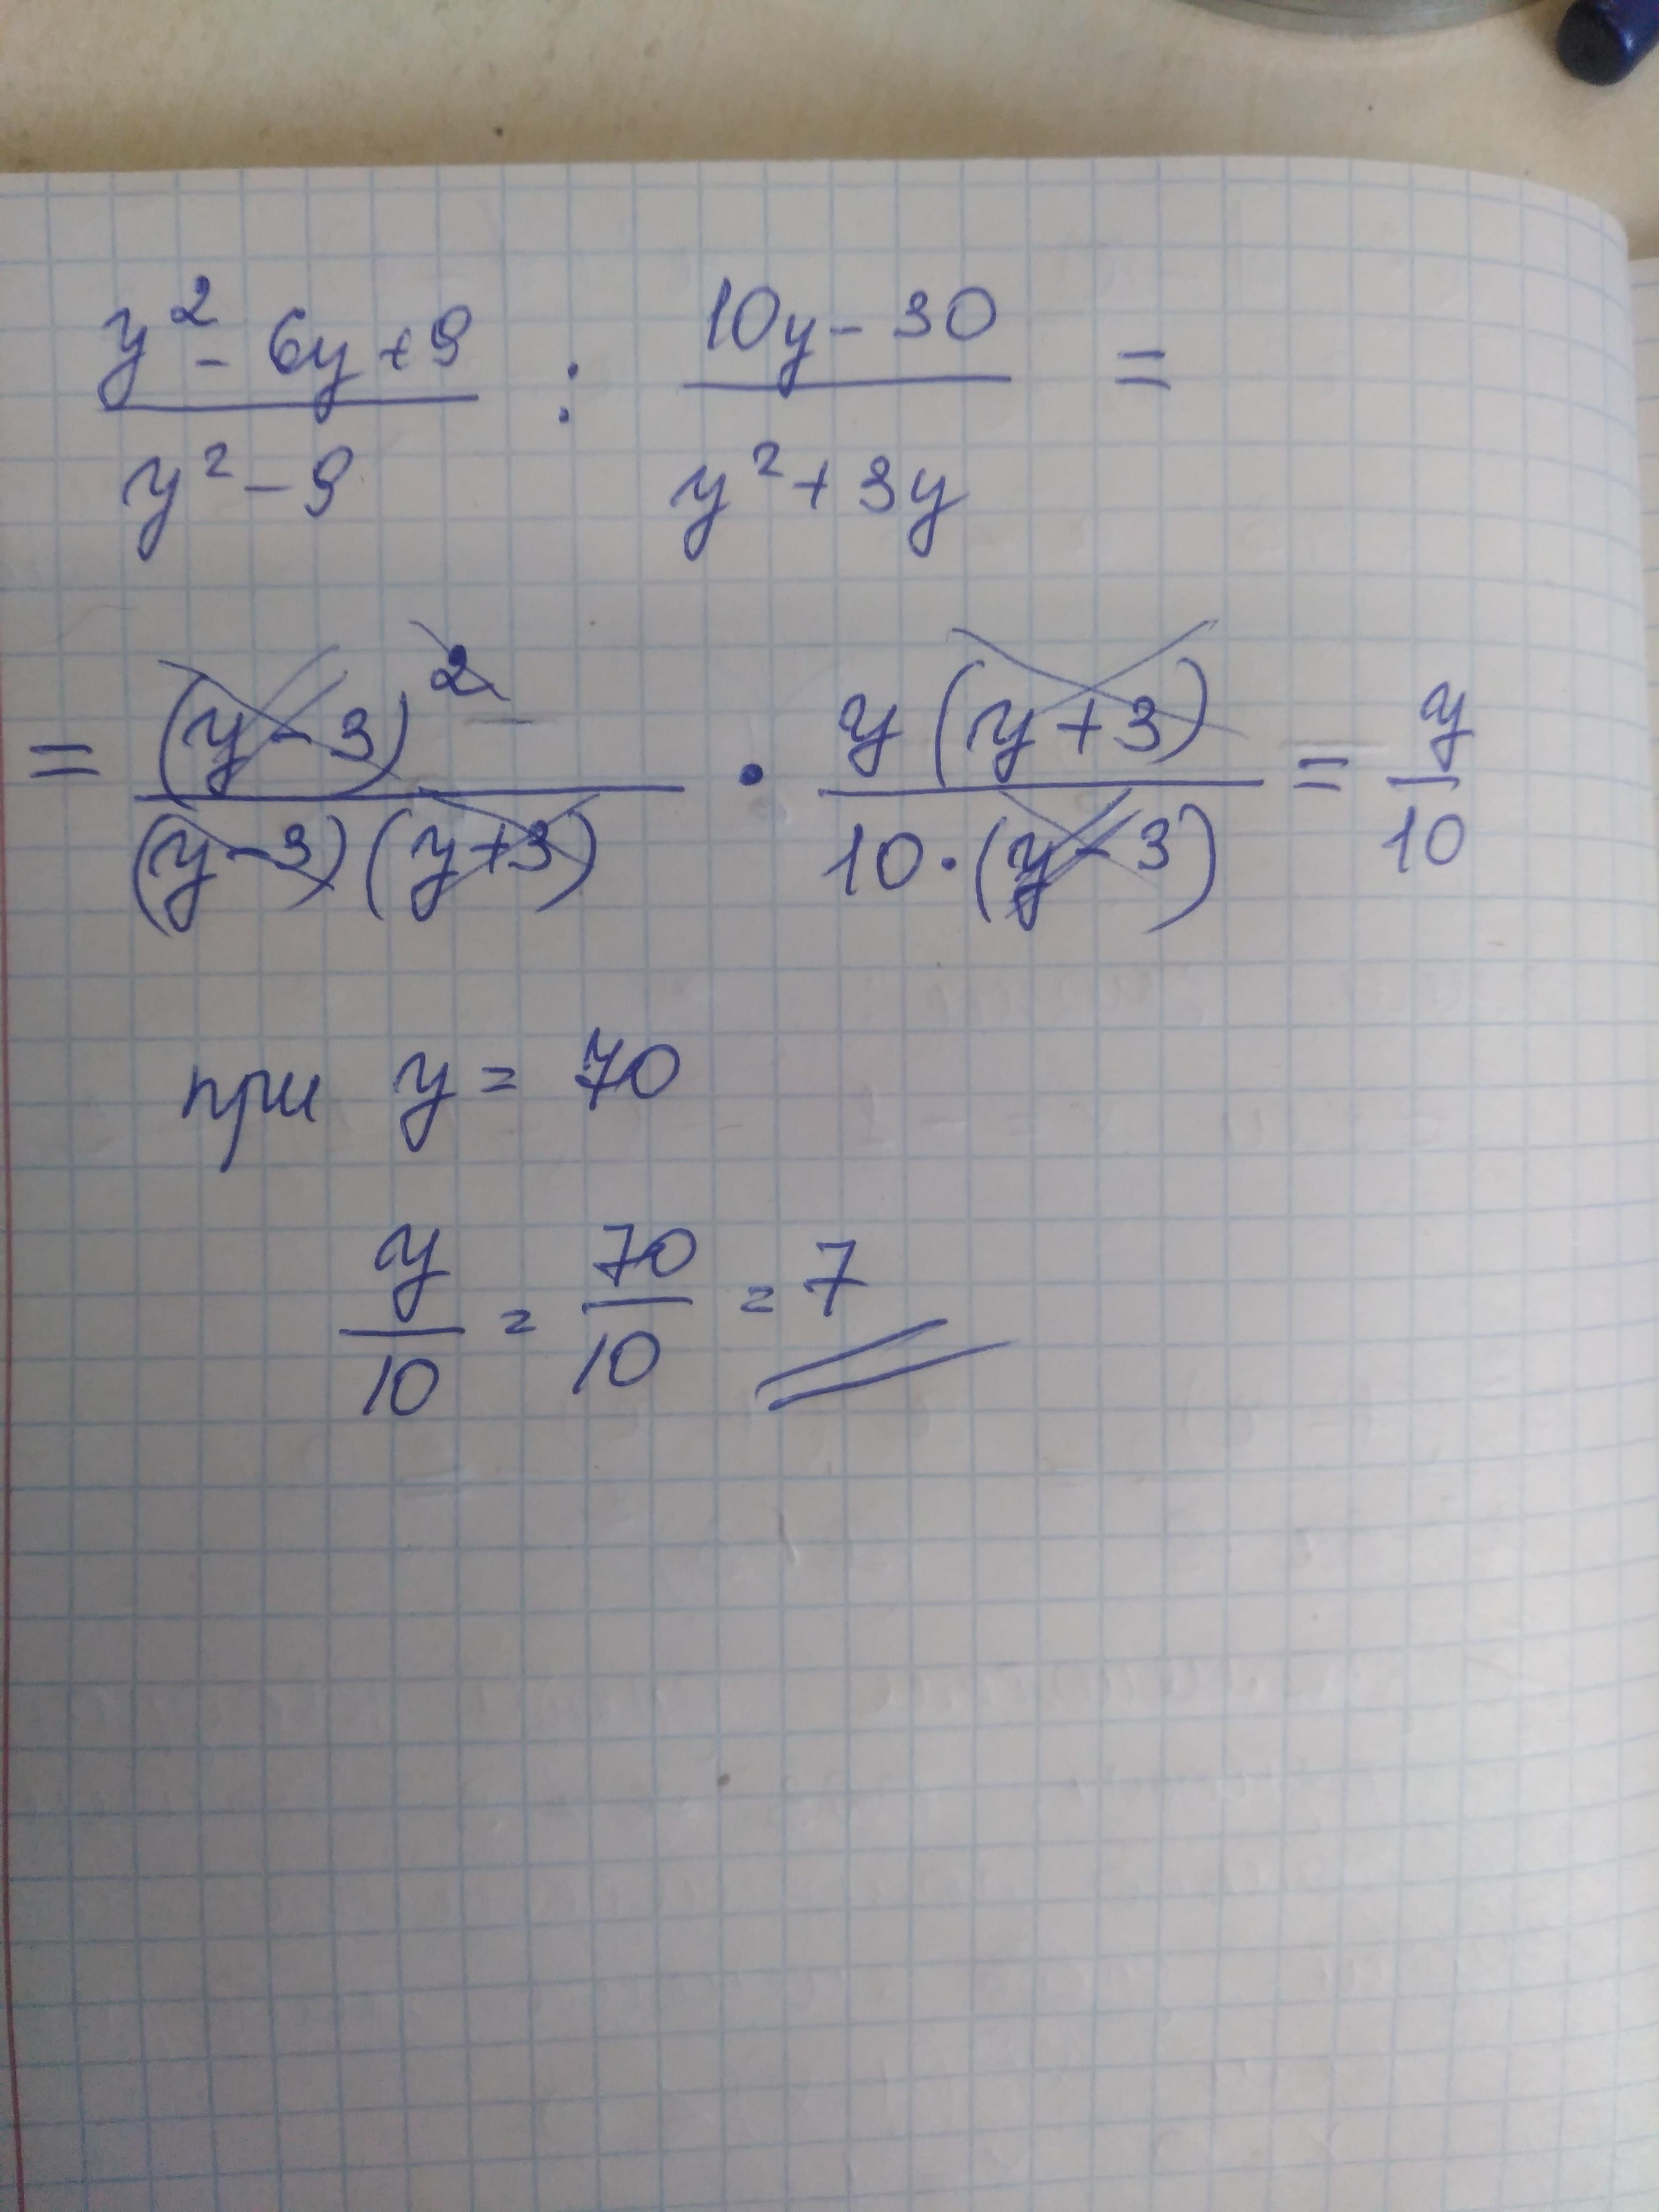 y² - 6y + 9 / y² - 9 : 10y - 30 / y² + 3y =
= (y - 3)² / (y - 3)(y + 3) · y(y + 3) / 10 · (y - 3) = y / 10
при y = 70
y / 10 = 70 / 10 = 7